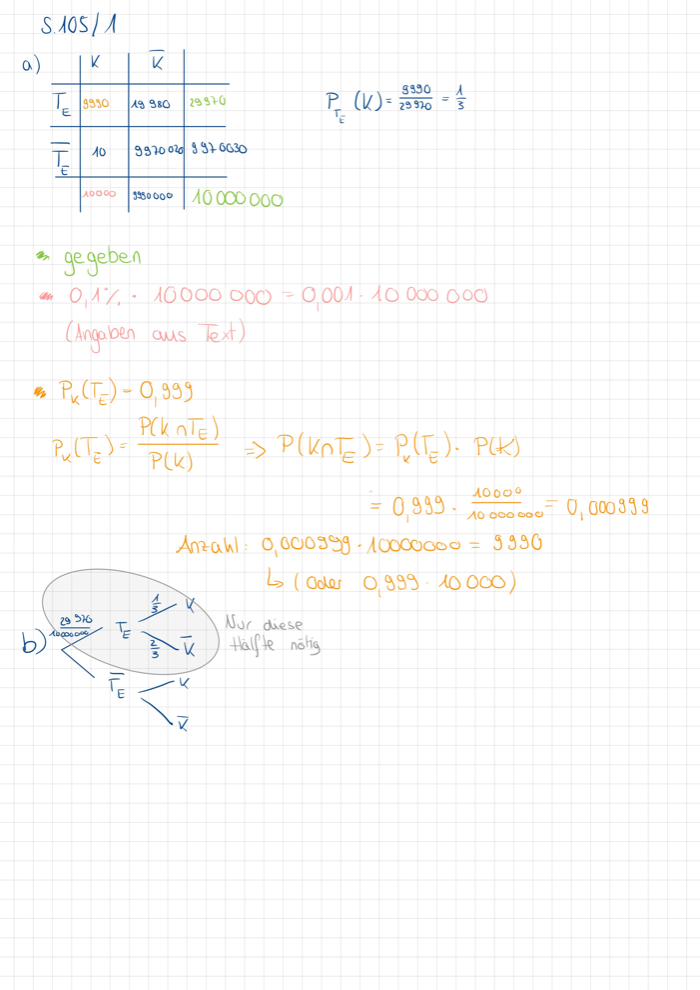 S.105/1
a)
K K̅
T_E 9990 19 980 29970
T̅_E 10 9970 020 9 970030
10000 9990000 10 000 000
P_{T_E} (K) = 9990/29970 = 1/3
gegeben
0,1% · 10000 000 = 0,001 · 10 000 000
(Angaben aus Text)
P_K(T_E) = 0,999
P_K(T_E) = P(K∩T_E)/P(K) => P(K∩T_E) = P_K(T_E) · P(K)
= 0,999 · 10000/10 000 000 = 0,000999
Anzahl: 0,000999 · 10000000 = 9990
↳ (oder 0,999 · 10 000)
b)
29 970/10000000 T_E 1/3 K
2/3 K̅
T̅_E K
K̅
Nur diese
Hälfte nötig